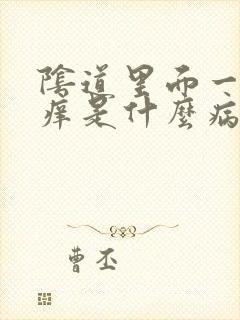 陰道里而一
痒是什麼病
曹丕